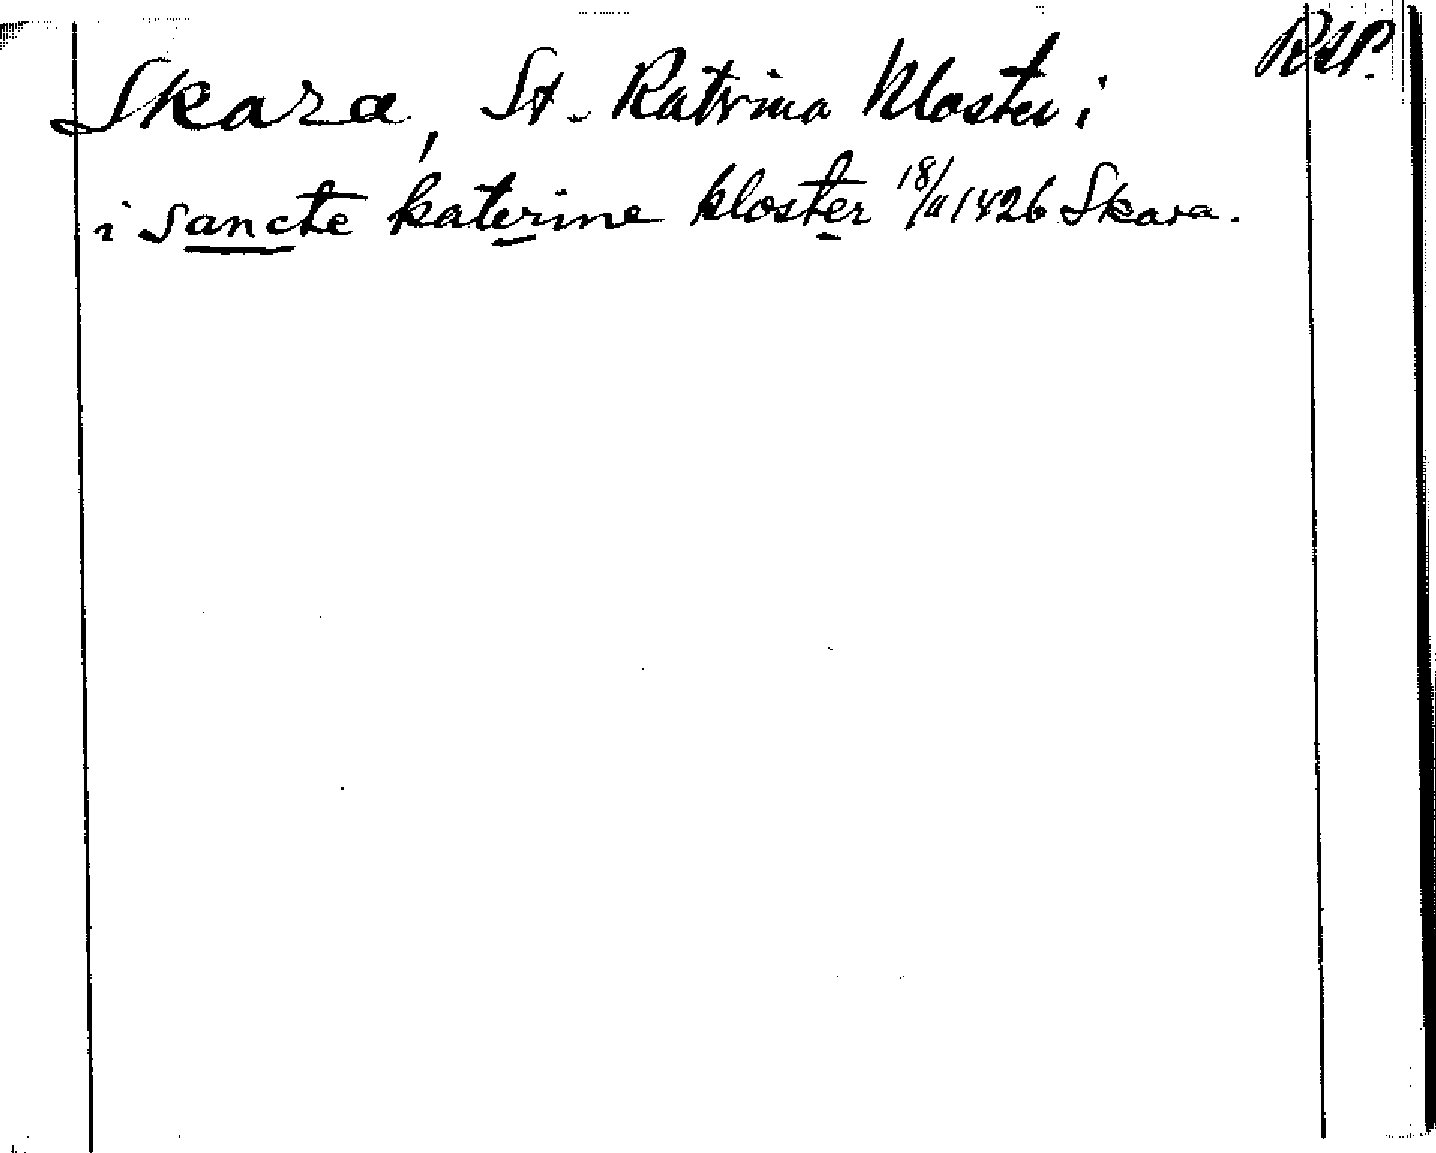 Skara, St. Katrina Kloster i RAP.
i sancte katerine kloster 18/11 1426 Skara.